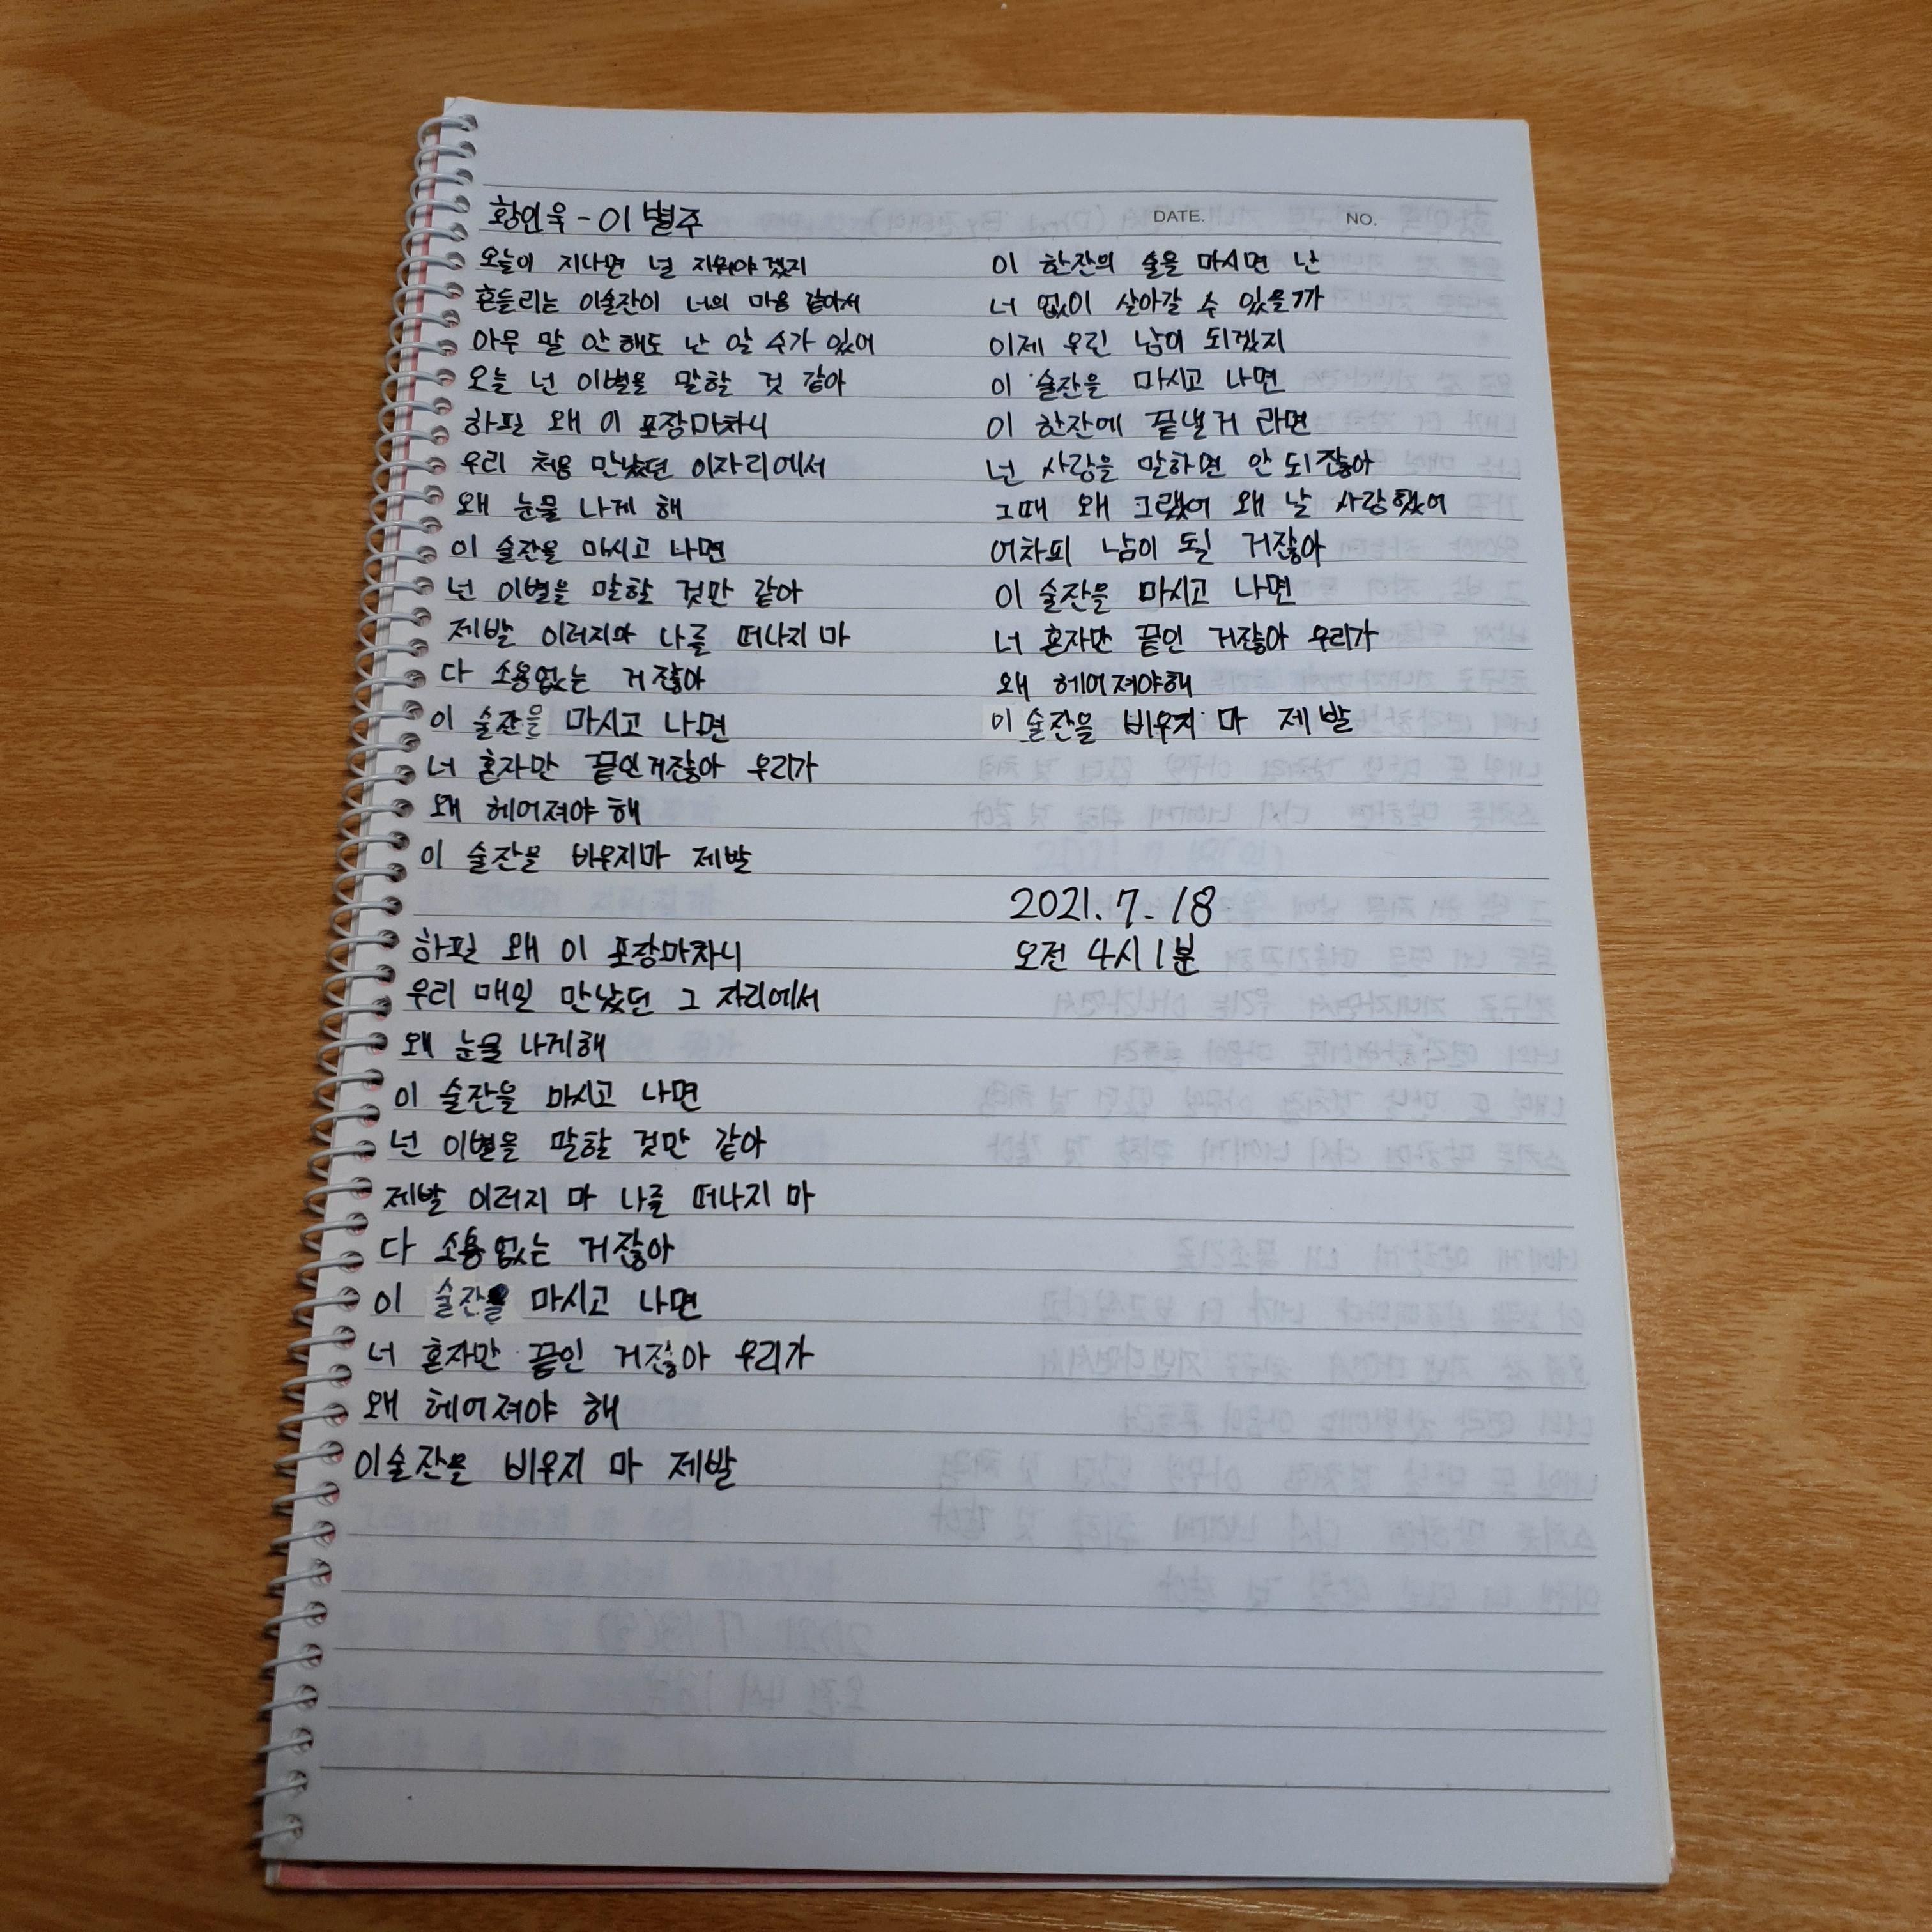 황인욱 - 이별주
DATE.
NO.
오늘이 지나면 널 지워야겠지
흔들리는 이술잔이 너의 마음 같아서
아무 말 안 해도 난 알 수가 있어
오늘 넌 이별을 말할 것 같아
하필 왜 이 포장마차니
우리 처음 만났던 이자리에서
왜 눈물 나게 해
이 술잔을 마시고 나면
넌 이별을 말할 것만 같아
제발 이러지마 나를 떠나지 마
다 소용없는 거잖아
이 술잔을 마시고 나면
너 혼자만 끝인거잖아 우리가
왜 헤어져야 해
이 술잔을 비우지마 제발
하필 왜 이 포장마차니
우리 매일 만났던 그 자리에서
왜 눈물 나게해
이 술잔을 마시고 나면
넌 이별을 말할 것만 같아
제발 이러지 마 나를 떠나지 마
다 소용없는 거잖아
이 술잔을 마시고 나면
너 혼자만 끝인 거잖아 우리가
왜 헤어져야 해
이술잔을 비우지 마 제발
이 한잔의 술을 마시면 난
너 없이 살아갈 수 있을까
이제 우린 남이 되겠지
이 술잔을 마시고 나면
이 한잔에 끝낼거 라면
넌 사랑을 말하면 안 되잖아
그때 왜 그랬어 왜 날 사랑했어
어차피 남이 될 거잖아
이 술잔을 마시고 나면
너 혼자만 끝인 거잖아 우리가
왜 헤어져야해
이 술잔을 비우지 마 제발
2021. 7. 18
오전 4시 1분